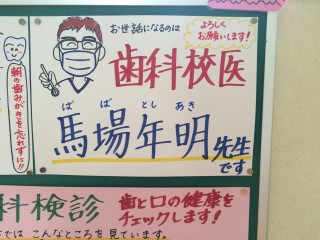 お世話になるのは
よろしく
お願いします!
歯科校医
ばば としあき
馬場年明先生
です
朝の歯みがきを忘れずに!!
科検診
歯と口の健康を
チェックします!
では こんなところを見ています。